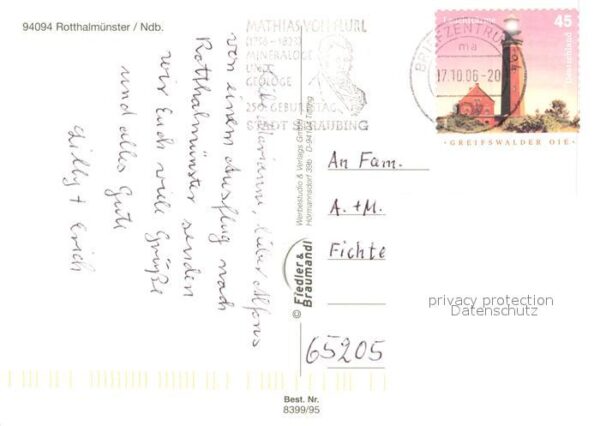 94094 Rotthalmünster / Ndb.
MATHIAS VON FLURL
(1756-1823)
MINERALOGE
UND
GEOLOGE
250. GEBURTSTAG
STADT STRAUBING
BRIEFZENTRUM
ma
17.10.06-20
Leuchttürme
45
Deutschland
GREIFSWALDER OIE
Liebe Marianne, lieber Alfons
von einem Ausflug nach
Rotthalmünster senden
wir Euch viele Grüße
und alles Gute
Lilly + Erich
Werbestudio & Verlags GmbH
Hörmannsdorf 39b · D-94104 Tittling
© Fiedler &
Braumandl
An Fam.
A. + M.
Fichte
65205
privacy protection
Datenschutz
Best. Nr.
8399/95